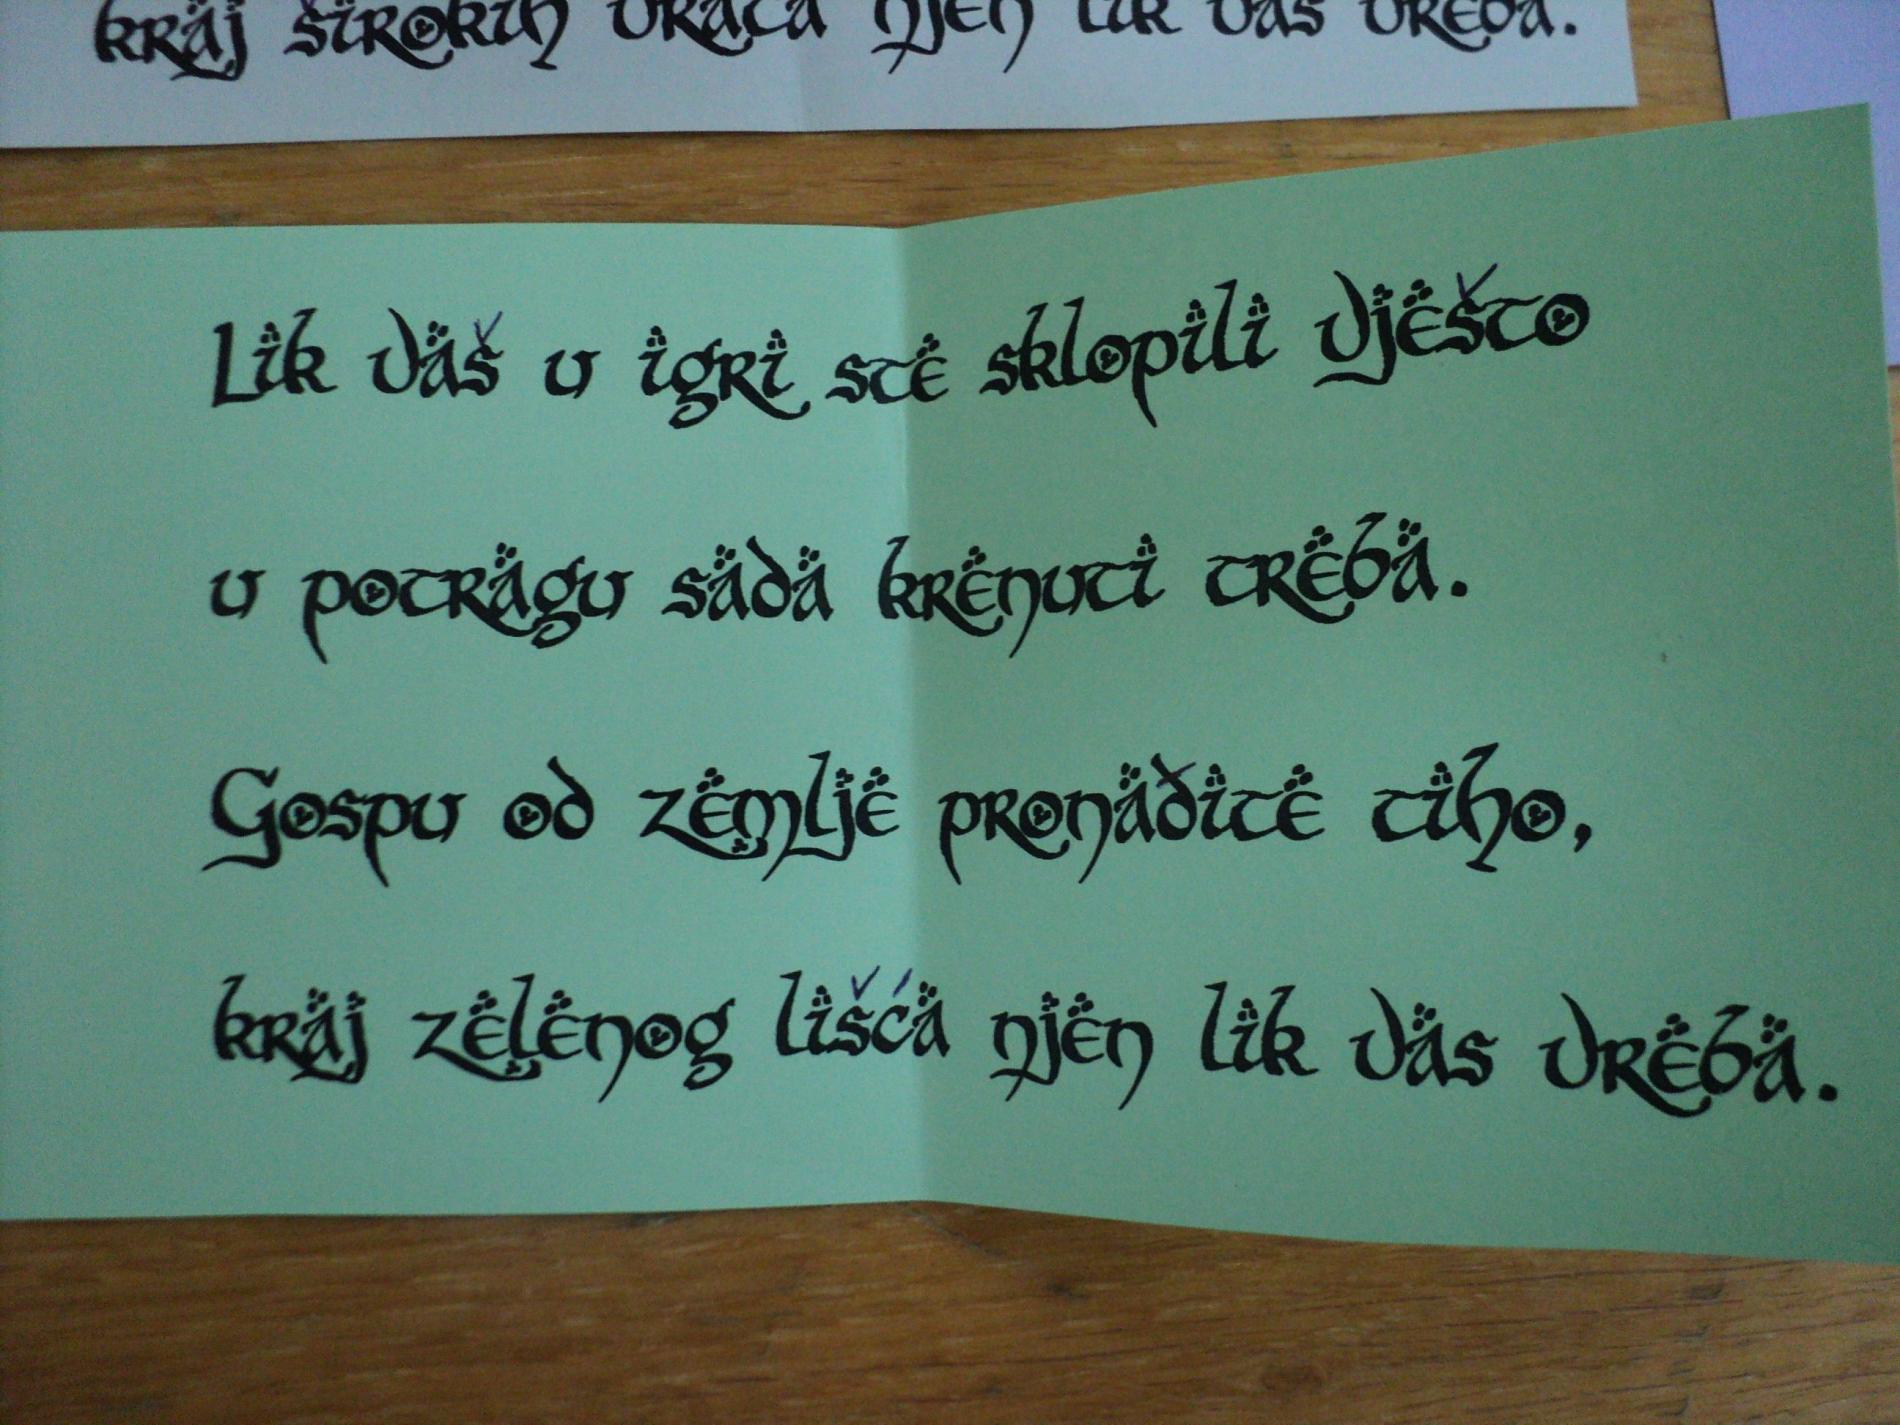 kraj širokih vrata njen lik vas vreba.
Lik vaš u igri ste sklopili vješto
u potragu sada krenuti treba.
Gospu od zemlje pronađite tiho,
kraj zelenog lišća njen lik vas vreba.